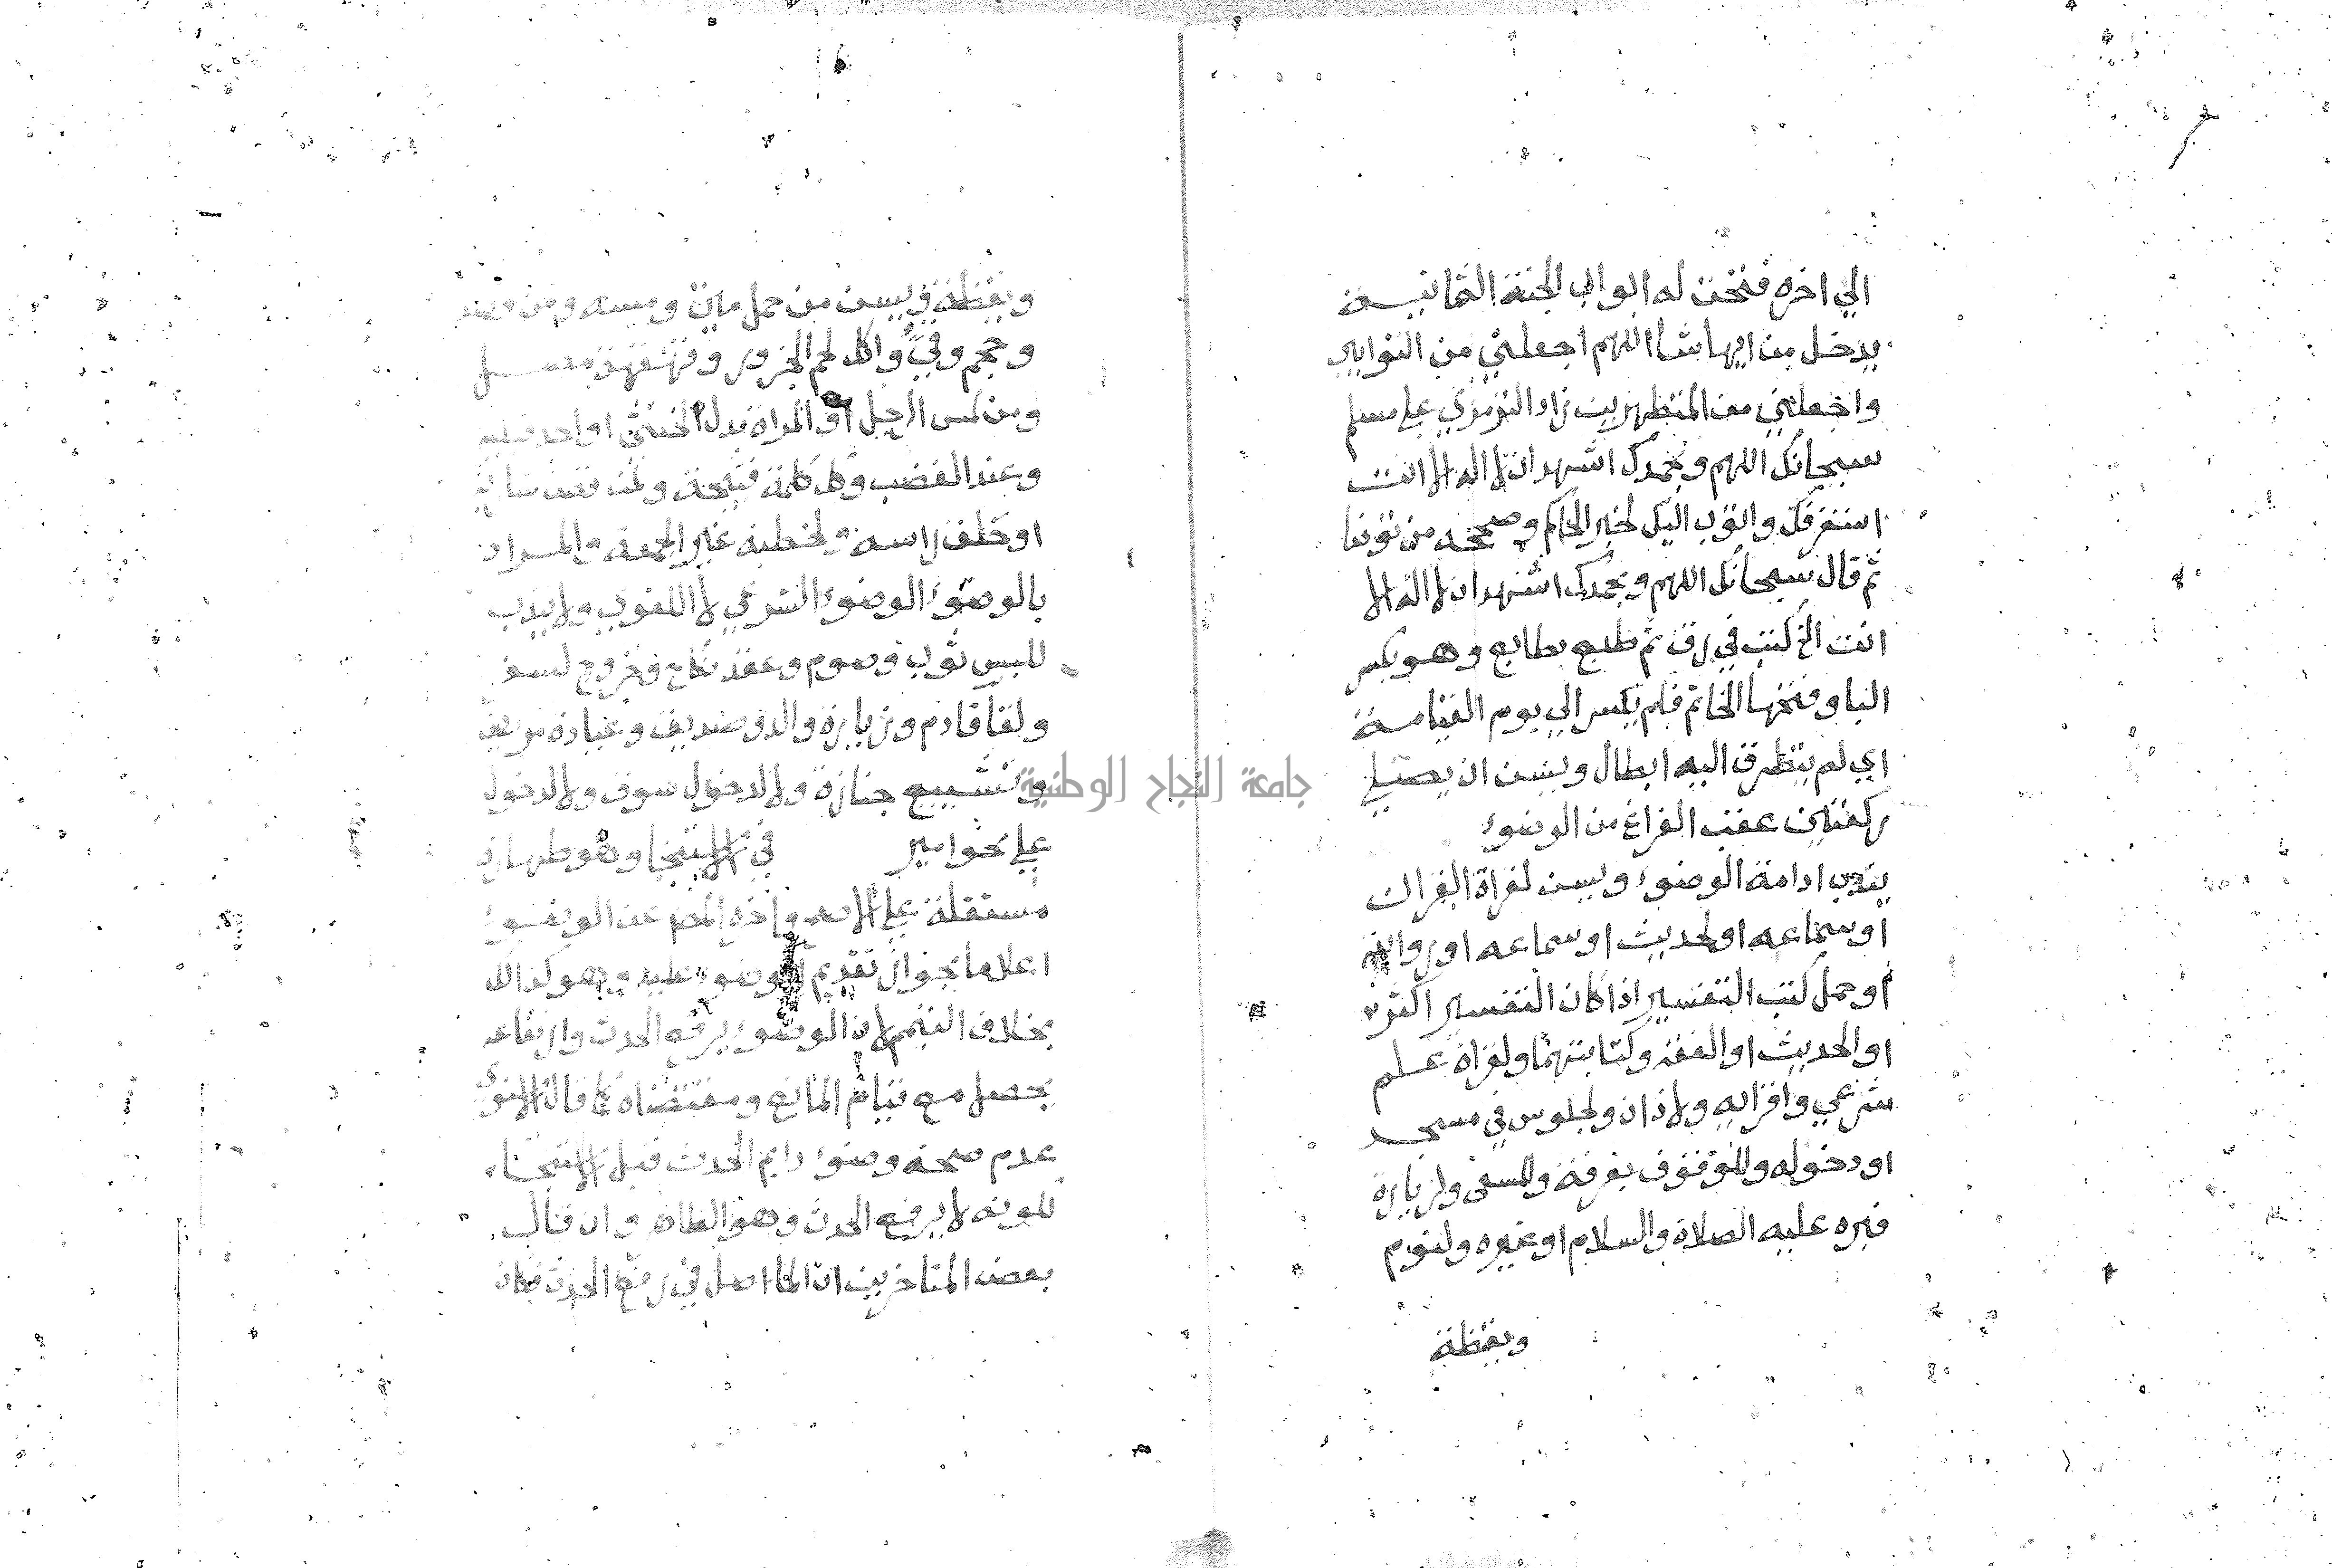 الي اخره فتحت له ابواب الجنة الثمانيــة
يدخل من ايها شا اللهم اجعلني من التوابين
واجعلني من المتطهرين زاد الترمذي علي مسلم
سبحانك اللهم وبحمدك اشهد ان لا اله الا انت
استغفرك واتوب اليك لخبر الحاكم وصححه من توضا
ثم قال سبحانك اللهم وبحمدك اشهد ان لا اله الا
انت الخ كتب في رق ثم طبع بطابع وهو بكسر
البا وفتحها الخاتم فلم يكسر الي يوم القيامــة
اي لم يتطرق اليه ابطال ويسن ان يصلي
ركعتين عقب الفراغ من الوضوء
يندب ادامة الوضوء ويسن لقراة القران
او سماعه او الحديث او سماعه او روايته
او حمل كتب التفسير اذا كان التفسير اكثر
او الحديث او الفقه وكتابتهما ولقراة علــم
شرعي واقرايه ولاذان ولجلوس في مسجــد
او دخوله وللوقوف بعرفة وللسعي ولزيارة
قبره عليه الصلاة والسلام او غيره ولنوم
ويقظة
ويقظة ويسن من حمل ميت ومسه ومن
وحجم وقيء واكل لحم الجزور وقهقهة مصــل
ومن لمس الرجل او المراة بدل الخنثي او احد قبليه
وعند الغضب وكل كلمة قبيحة ولمن قص شاربه
او حلق راسه ولخطبة غير الجمعة والمــراد
بالوضوء الوضوء الشرعي لا اللغوي ولا يندب
للبس ثوب وصوم وعقد نكاح وخروج لسفر
ولقا قادم وزيارة والد وصديق وعيادة مريض
وتشييع جنازة ولا لدخول سوق ولا لدخول
علي نحو امير في الاستنجا وهو طهارة
مستقلة علي الاصح واخره المص عن الوضوء
اعلاما بجواز تقديم الوضوء عليه وهو كذالك
بخلاف التيمم لان الوضوء يرفع الحدث وارتفاعه
يحصل مع قيام المانع ومقتضاه كما قال الاسنوي
عدم صحة وضوء دايم الحدث قبل الاستنجاء
لكونه لا يرفع الحدث وهو الظاهر وان قال
بعض المتاخرين ان الما اصل في رفع الحدث فكان
جامعة النجاح الوطنية